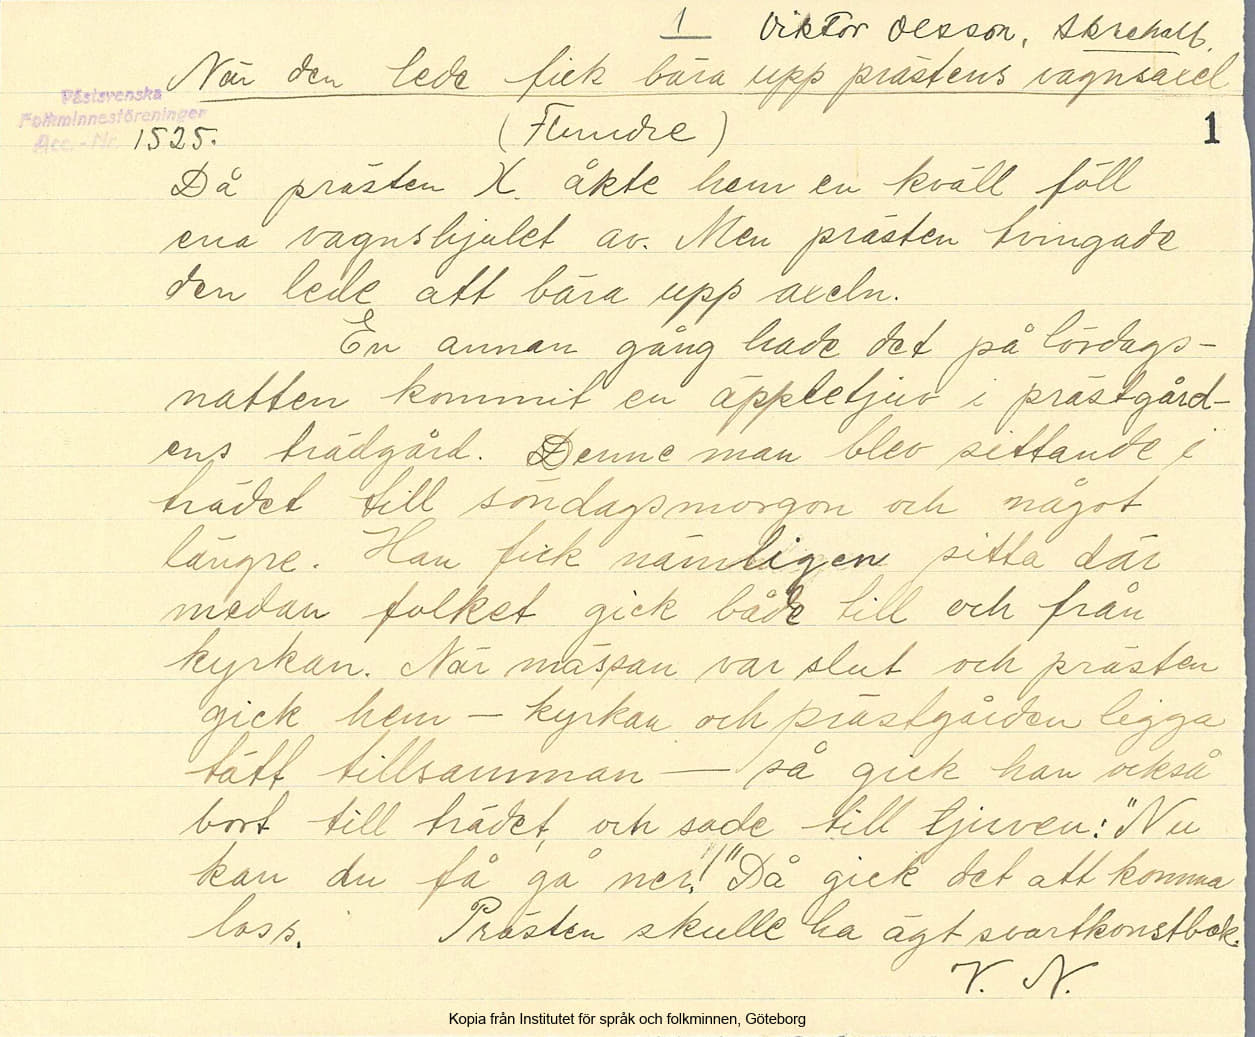 1 Viktor Olsson, Skrehalt.
När den lede fick bära upp prästens vagnsaxel
Västsvenska
Folkminnesföreningen
Acc. - Nr. 1525.
(Flundre)
1
Då prästen X. åkte hem en kväll föll
ena vagnshjulet av. Men prästen tvingade
den lede att bära upp axeln.
En annan gång hade det på lördags-
natten kommit en äppletjuv i prästgård-
ens trädgård. Denne man blev sittande i
trädet till söndagsmorgon och något
längre. Han fick nämligen sitta där
medan folket gick både till och från
kyrkan. När mässan var slut och prästen
gick hem – kyrkan och prästgården ligga
tätt tillsamman – så gick han också
bort till trädet, och sade till tjuven: "Nu
kan du få gå ner!" Då gick det att komma
loss. Prästen skulle ha ägt svartkonstbok.
V. N.
Kopia från Institutet för språk och folkminnen, Göteborg